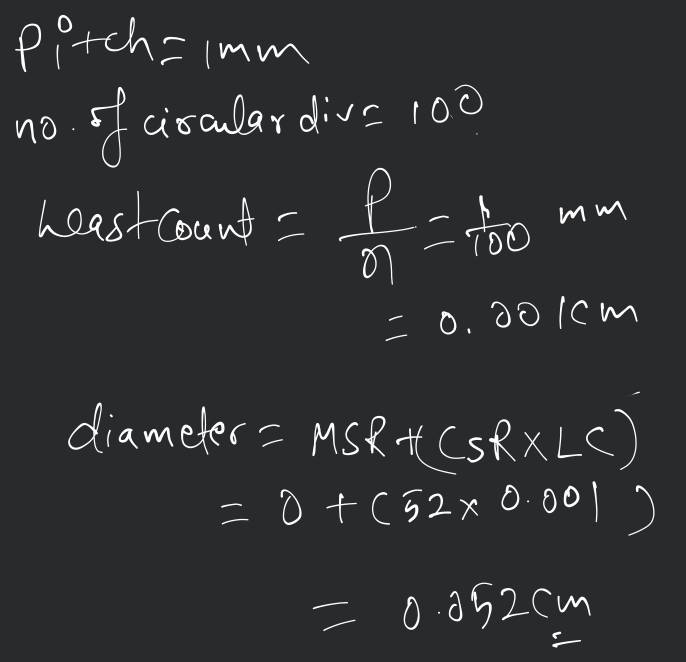 Pitch = 1mm
no. of circular div = 100
Least Count = P/n = 1/100 mm
= 0.001cm
diameter = MSR + (CSR x LC)
= 0 + (52 x 0.001)
= 0.052cm